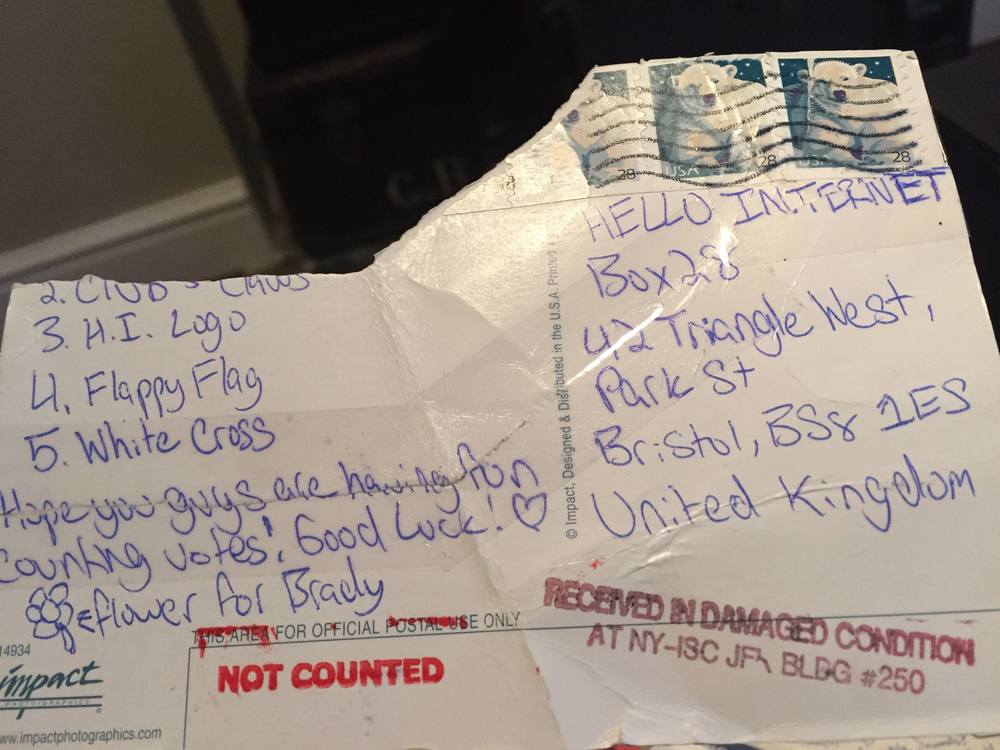 2. Club & Claws
3. H.I. Logo
4. Flappy Flag
5. White Cross
Hope you guys are having fun
Counting votes! Good Luck! ♡
flower for Brady
14934
impact
PHOTO-GRAPHICS
www.impactphotographics.com
THIS AREA FOR OFFICIAL POSTAL USE ONLY
NOT COUNTED
© Impact, Designed & Distributed in the U.S.A. Printed
28
USA 28
USA 28
HELLO INTERNET
Box 28
42 Triangle West,
Park St
Bristol, BS8 1ES
United Kingdom
RECEIVED IN DAMAGED CONDITION
AT NY-ISC JFK BLDG #250